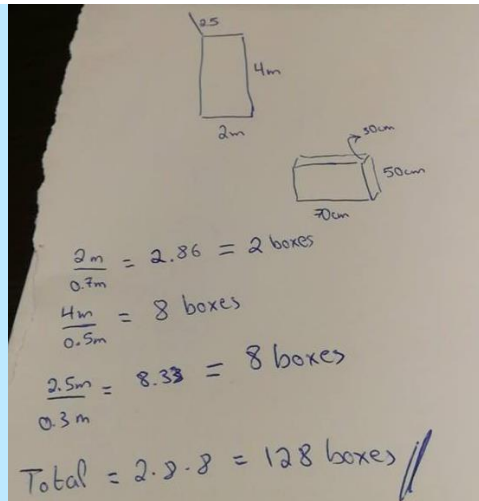 2.5
4m
2m
30cm
50cm
70cm
2m/0.7m = 2.86 = 2 boxes
4m/0.5m = 8 boxes
2.5m/0.3m = 8.33 = 8 boxes
Total = 2.8.8 = 128 boxes